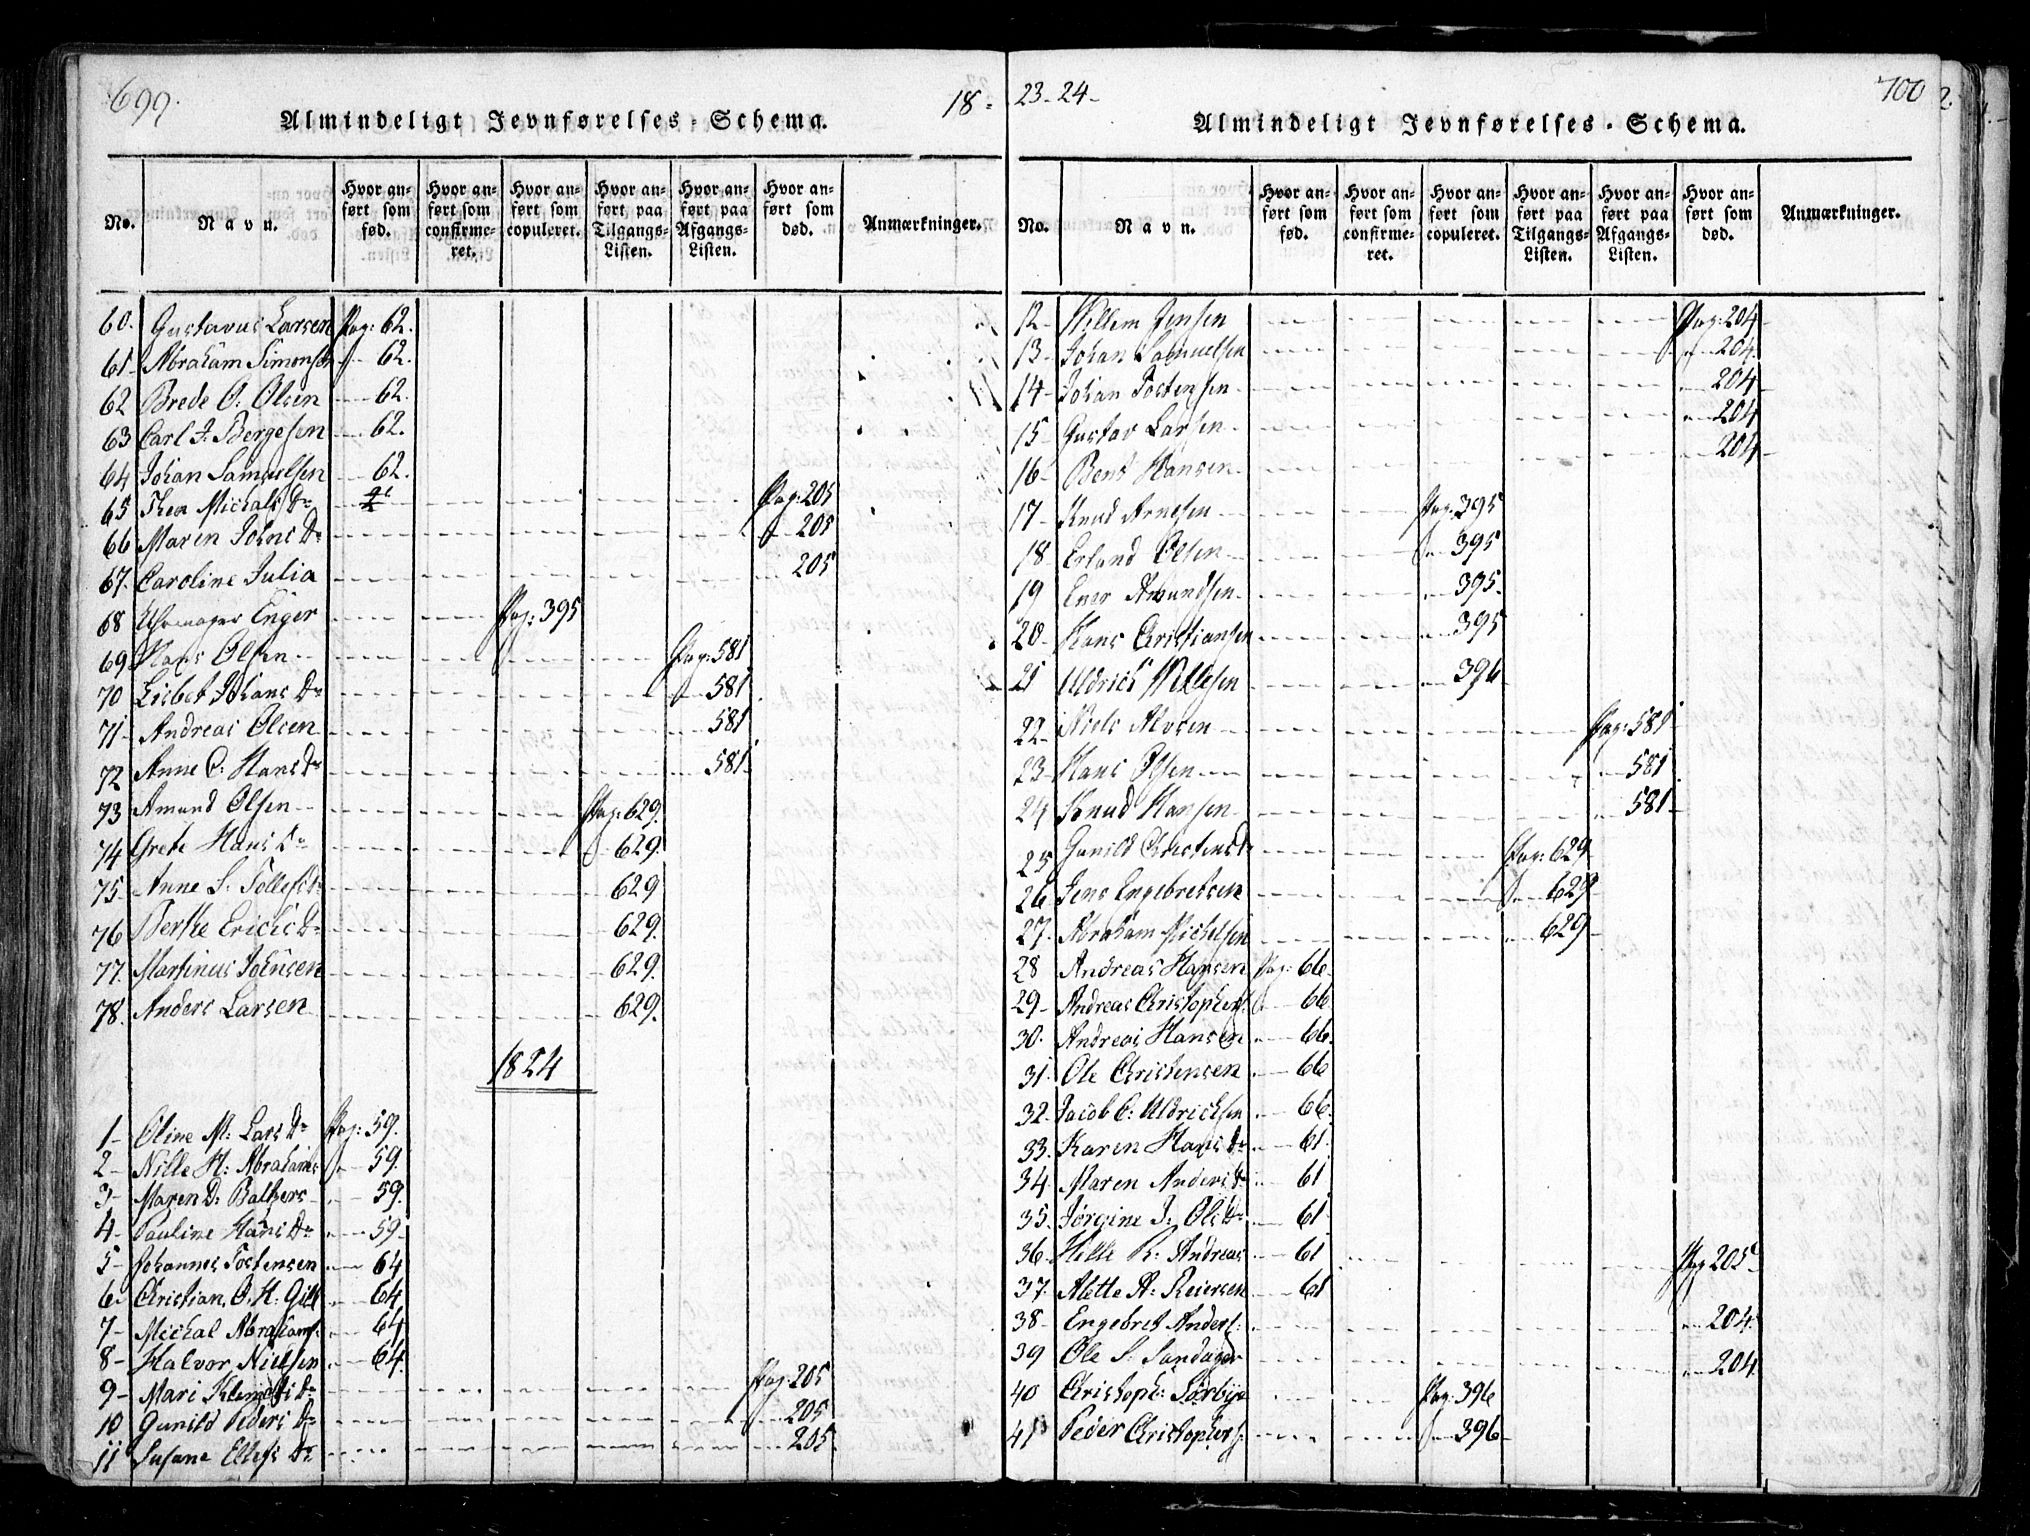 699.
18-
Almindeligt Jevnførelses-Schema.
No.
Navn.
Hvor anført som fød.
Hvor anført som confirmeret.
Hvor anført som copuleret.
Hvor anført paa Tilgangs-Listen.
Hvor anført paa Afgangs-Listen.
Hvor anført som død.
Anmærkninger.
60. Gustavus Larsen Pag: 62.
61- Abraham Simonsen 62.
62 Brede O: Olsen 62.
63 Carl J. Bergesen 62.
64 Johan Samuelsen 62.
65 Thea Michals Dr Pag: 205
66 Maren Johns Dr 205
67. Caroline Julia 205
68 Enger Pag: 395
69 Hans Olsen Pag: 581
70 Lisbet Johans Dr 581
71- Andreas Olsen 581
72 Anne C: Hans Dr 581
73 Amund Olsen Pag: 629.
74 Grete Hans Dr 629.
75- Anne S. Tollefs Dr 629
76 Berthe Erichs Dr 629.
77. Martinus Johnsen 629.
78. Anders Larsen 629.
1824
1- Oline M: Lars Dr Pag: 59.
2- Nille H: Abrahams 59.
3- Maren D: Balthers 59.
4- Pauline Hans Dr 59-
5- Johannes Tostensen 64
6- Christian O. H: Gill 64
7- Michal Abrahams. 64
8- Halvor Nielsen 64.
9- Mari Klemets Dr Pag: 205
10 Gunild Peders Dr 205
11 Susane Ellefs Dr 205
23-24-
700
Almindeligt Jevnførelses-Schema.
No.
Navn.
Hvor anført som fød.
Hvor anført som confirmeret.
Hvor anført som copuleret.
Hvor anført paa Tilgangs-Listen.
Hvor anført paa Afgangs-Listen.
Hvor anført som død.
Anmærkninger.
12- Willem Jensen Pag: 204
13- Johan Samuelsen 204.
14- Johan Tostensen 204
15- Gustav Larsen 204
16- Bent Hansen 204
17- Knud Arnesen Pag: 395
18 Erland Olsen 395
19 Ener Amundsen 395.
20- Hans Christiansen 395
21 Uldrich Willesen 396
22- Niels Alvsen Pag: 581
23- Hans Olsen 581
24 Knud Hansen 581-
25 Gunild Christens Dr Pag: 629
26 Jens Engebretsen 629
27. Abraham Michelsen 629
28 Andreas Hansen Pag: 66.
29- Andreas Christophers. 66
30. Andreas Hansen 66.
31. Ole Christensen 66
32. Jacob C: Uldrichsen 66.
33. Karen Hans Dr 61.
34 Maren Anders Dr 61
35. Jørgine J: Ols Dr 61
36- Helle R: Andreas 61 Pag 205
37. Alette A: Reiersen 61
38- Engebret Anders: 204.
39 Ole S: Sandager 204.
40 Christoph: Sørbye Pag: 396
41 Peder Christophers. 396